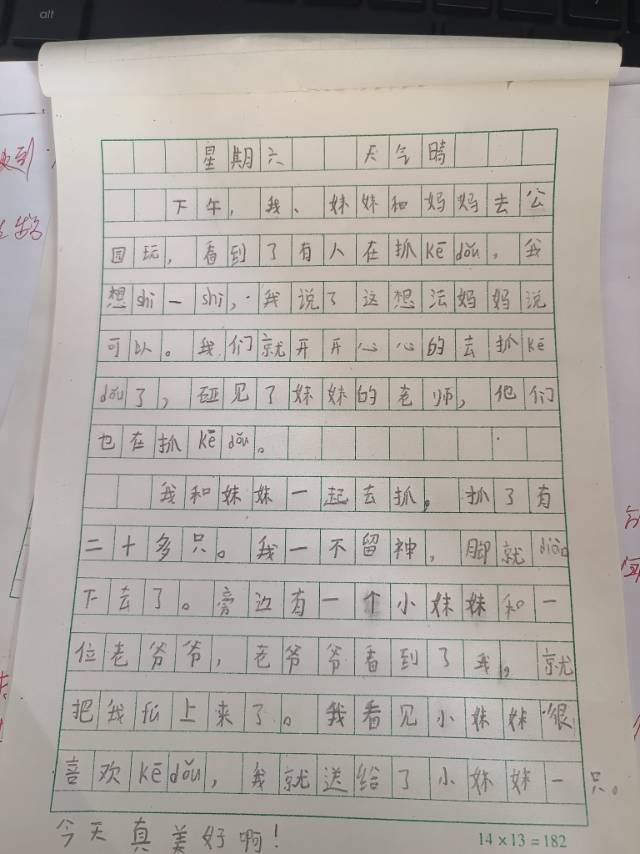 alt
星期六 天气晴
下午，我、妹妹和妈妈去公
园玩，看到了有人在抓kē dǒu，我
想shì一shì，我说了这想法妈妈说
可以。我们就开开心心的去抓kē
dǒu了，碰见了妹妹的老师，他们
也在抓kē dǒu。
我和妹妹一起去抓，抓了有
二十多只。我一不留神，脚就diào
下去了。旁边有一个小妹妹和一
位老爷爷，老爷爷看到了我，就
把我fú上来了。我看见小妹妹很
喜欢kē dǒu，我就送给了小妹妹一只。
今天真美好啊！
14×13=182